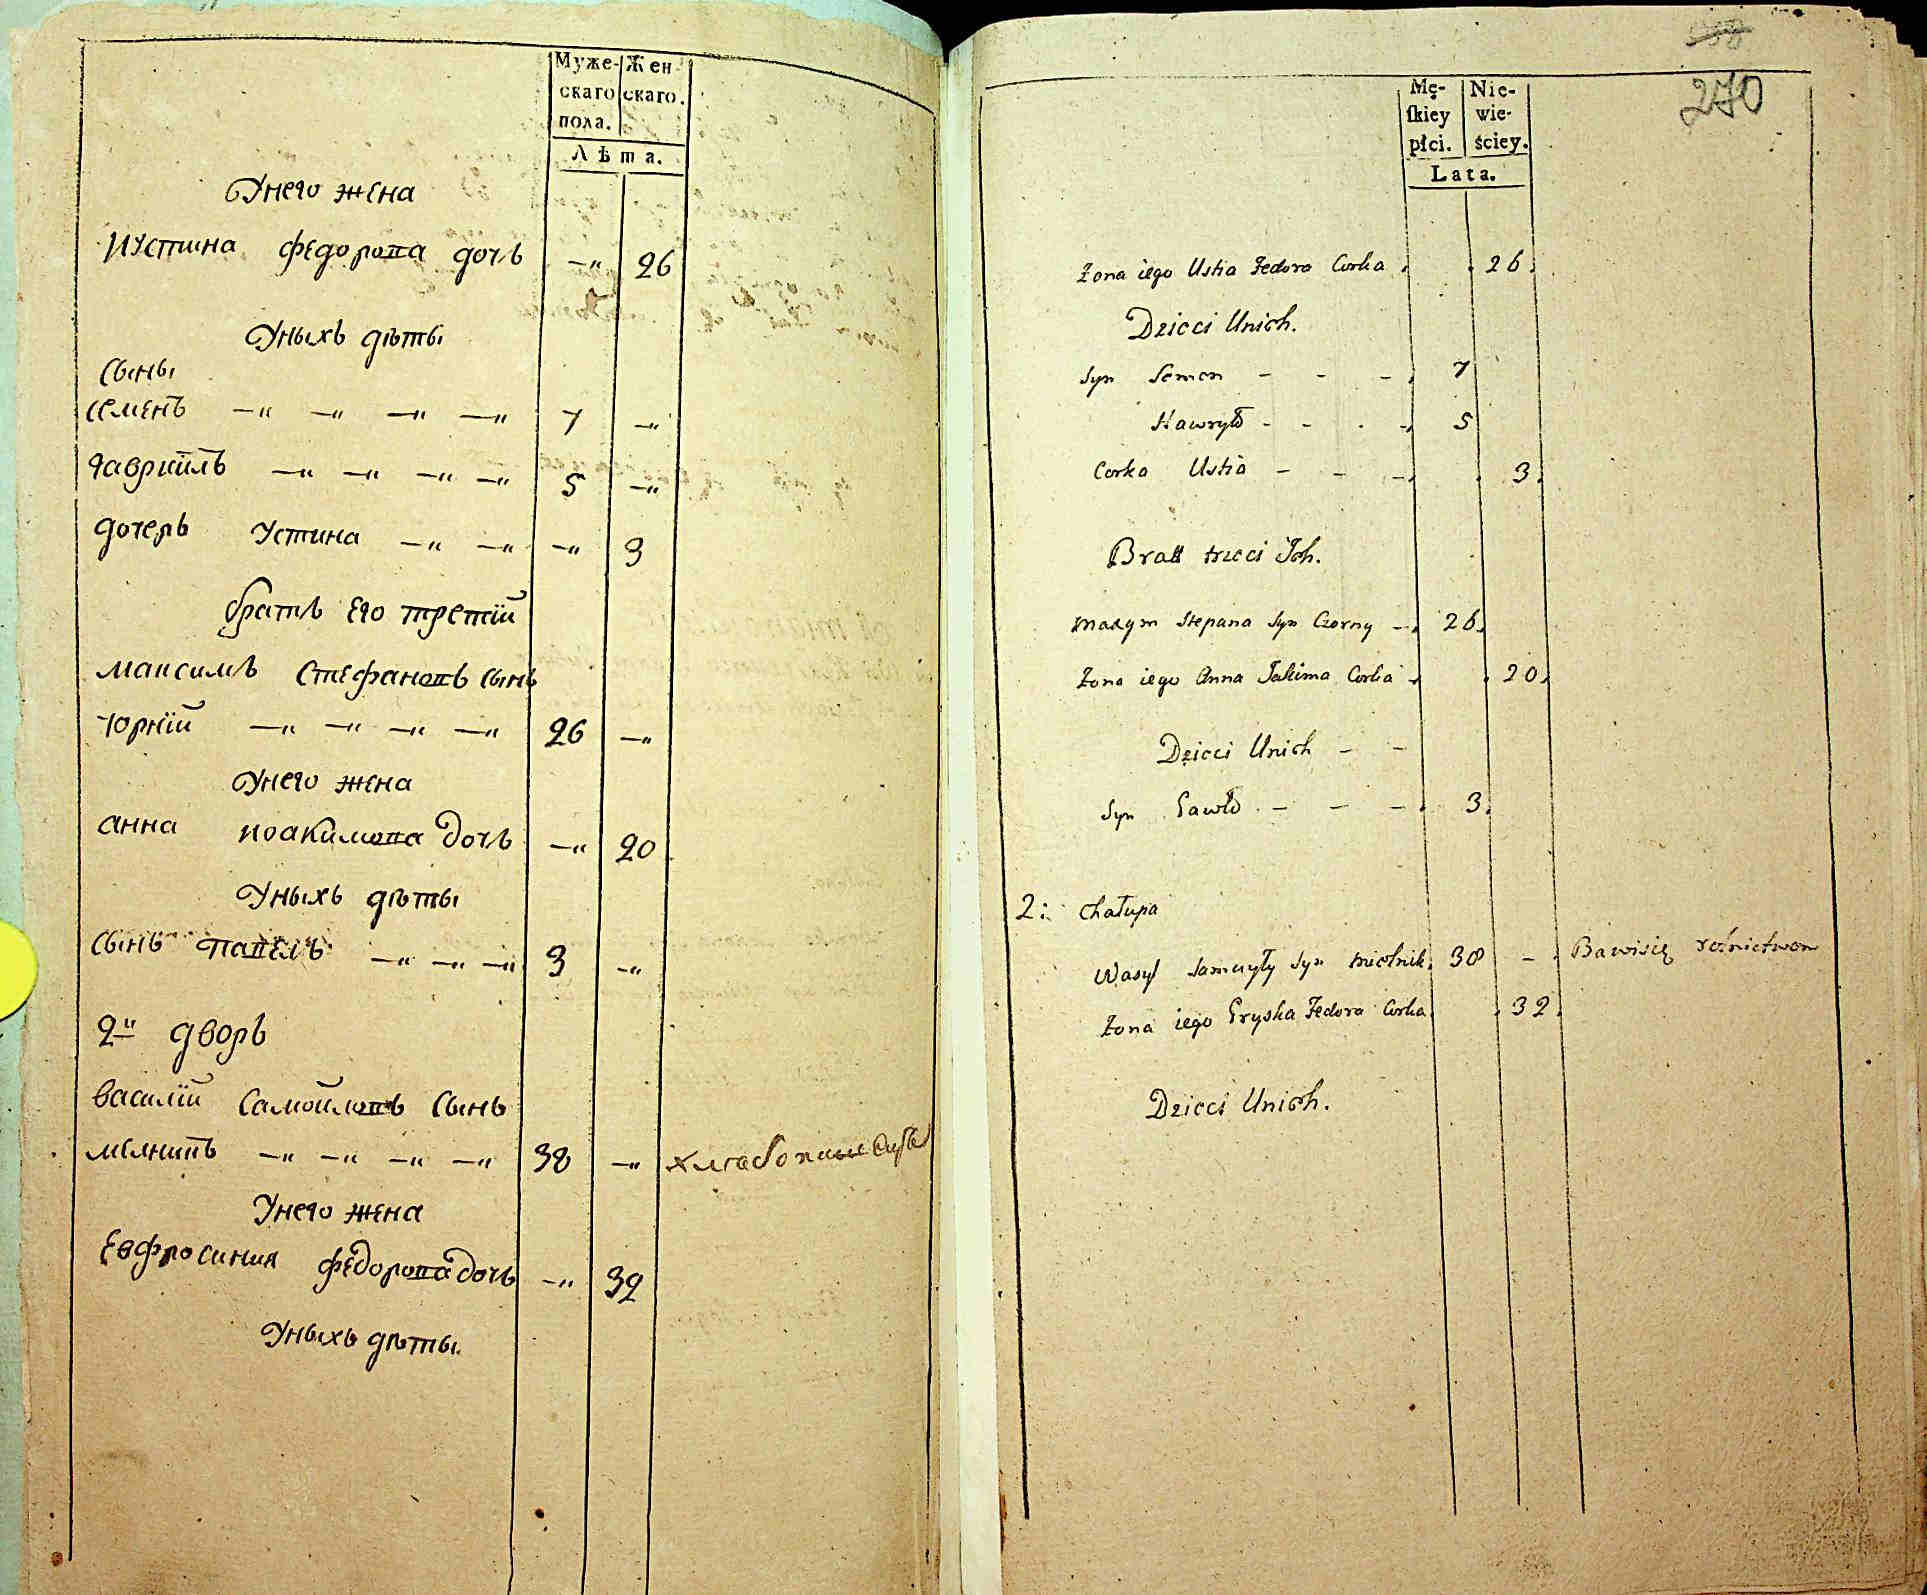 Муже-
скаго
пола.
Жен
скаго.
Лѣта.
Унего жена
Иустина федорова дочь —„ 26
Уныхъ дѣты
сыны
семенъ —„ —„ —„ —„ 7 —„
гавриилъ —„ —„ —„ —„ 5 —„
дочерь Устина —„ —„ —„ 3
братъ его третій
максимъ Стефановъ сынъ
чорній —„ —„ —„ —„ 26 —„
Унего жена
анна иоакимова дочь —„ 20
Уныхъ дѣты
сынъ павелъ —„ —„ —„ 3 —„
2й дворъ
василій Самойловъ сынъ
мелникъ —„ —„ —„ —„ 38 —„
Унего жена
Евфросиния федорова дочь —„ 32
Уныхъ дѣты.
270
Mę-
ſkiey
płci.
Nie-
wie-
ściey.
Lata.
Żona iego Ustia Fedora Corka 26.
Dzieci Unich.
Syn Semen - - - 7
Hawryło - - - 5
Corka Ustia - - - 3.
Bratt trzeci Ich.
Maxym Stepana Syn Czorny - 26.
Żona iego Anna Jakima Corka 20.
Dzieci Unich - -
Syn Pawło - - - 3.
2: Chałupa
Wasyl Samuyły Syn Mielnik. 38 - Bawisię rolnictwem
Żona iego Pryska Fedora Corka 32.
Dzieci Unich.